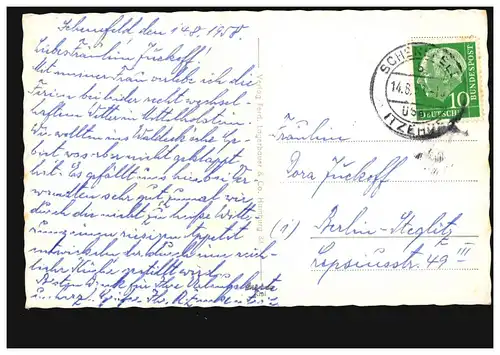 Schenefeld den 14.8.1958.
Liebes Fräulein Juckoff!
Mit unserer Frau erlebe ich die
Ferien bei leider recht wechsel-
haftem Wetter in Mittelholstein.
Wir wollten ins Waldeck'sche Ge-
biet, was aber nicht geklappt
hat. Es gefällt uns hier bei Ver-
wandten sehr gut, zumal wir
durch die nicht zu heiße Witte-
rung einen riesigen Appetit
entwickeln, der durch eine reich-
liche Küche gestillt wird.
Besten Dank für Ihre
u. herzl. Grüße Ihr
Verlag Ferd. Lagerbauer & Co., Hamburg
SCHENEFELD
14.8.
ITZEHOE
DEUTSCHE
BUNDESPOST
10
Fräulein
Dora Juckoff
(1) Berlin-Steglitz
Lepsiusstr. 49 III